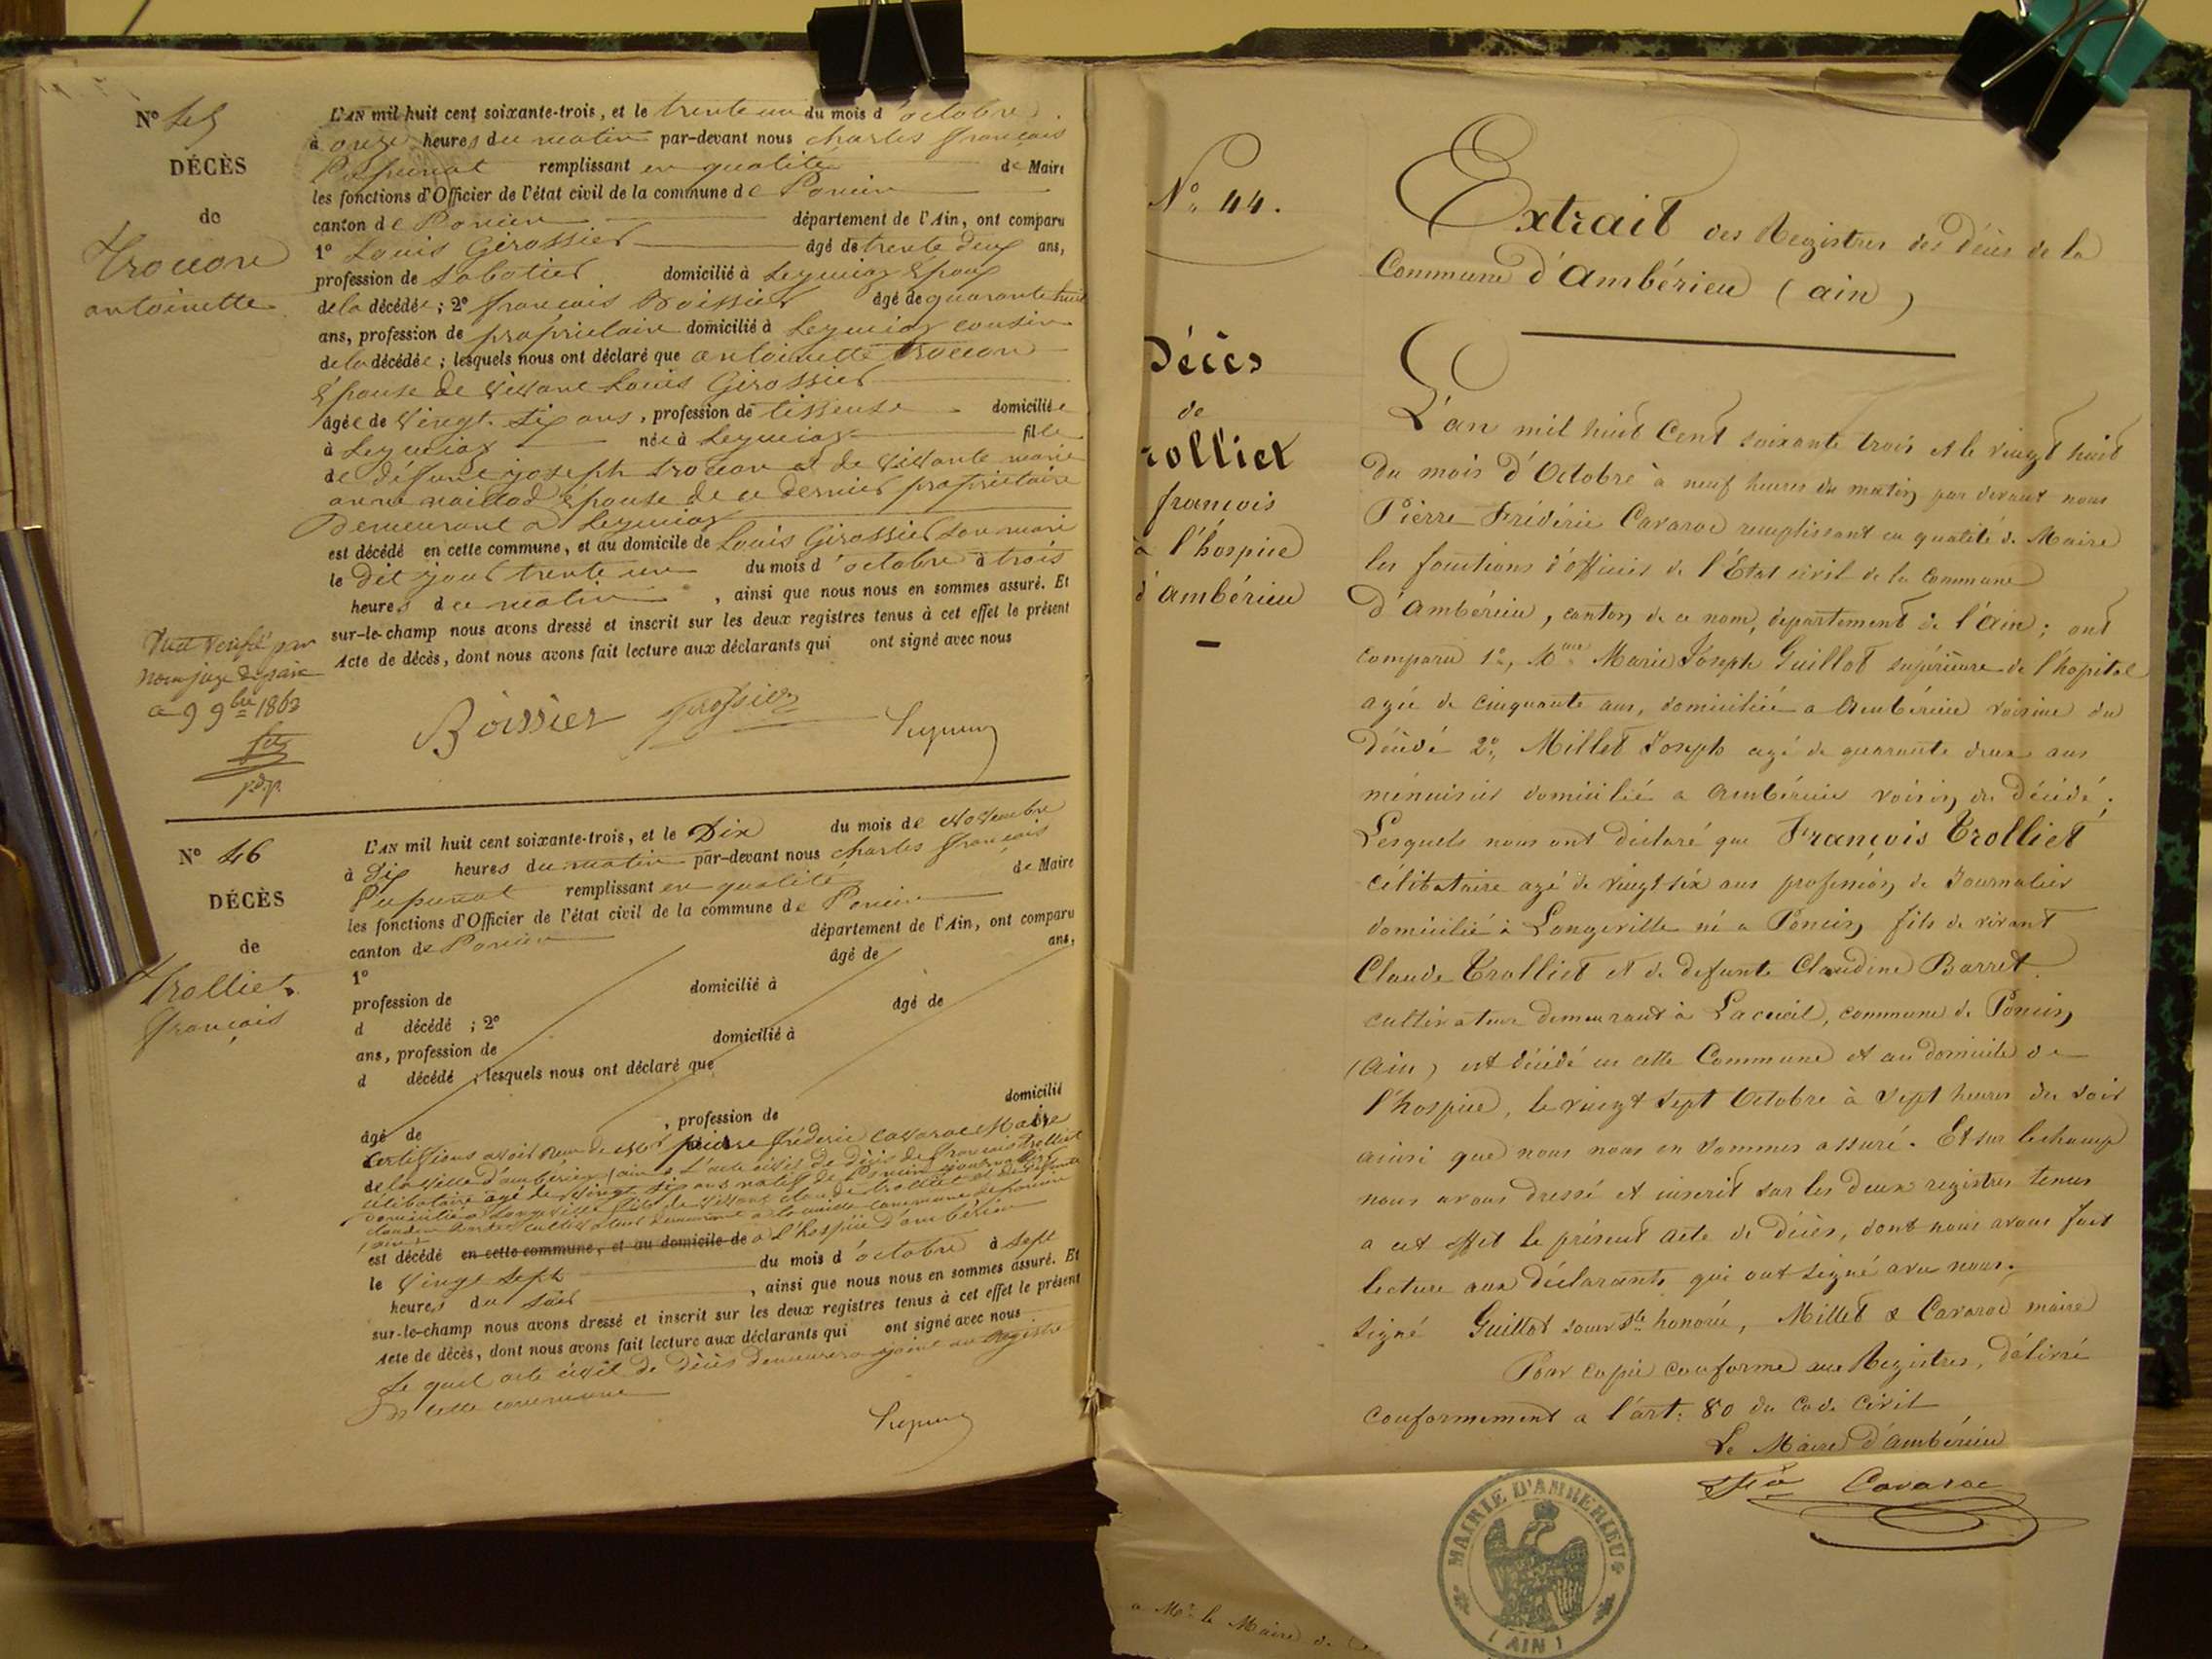 N° 45
DÉCÈS
de
Trocon
antoinette
L'AN mil huit cent soixante-trois, et le trente un du mois d'octobre
à onze heures du matin par-devant nous charles françois
remplissant en qualité de Maire
les fonctions d'Officier de l'état civil de la commune de Poncin
canton de Poncin département de l'Ain, ont comparu
1° Louis Girossier âgé de trente deux ans,
profession de Sabotier domicilié à Leymiaz Époux
de la décédée ; 2° françois Boissier âgé de quarante huit
ans, profession de propriétaire domicilié à Leymiaz cousin
de la décédée ; lesquels nous ont déclaré que antoinette
Épouse de vivant Louis Girossier
âgée de vingt six ans, profession de tisseuse domiciliée
à Leymiaz née à Leymiaz fille
de défunt joseph et de vivante marie
épouse de ce dernier propriétaire
Demeurant a Leymiaz
est décédé en cette commune, et au domicile de Louis Girossier son mari
le dit jour trente un du mois d'octobre à trois
heures du matin, ainsi que nous nous en sommes assuré. Et
sur-le-champ nous avons dressé et inscrit sur les deux registres tenus à cet effet le présent
Acte de décès, dont nous avons fait lecture aux déclarants qui ont signé avec nous
par
nous juge de paix
a 9 9bre 1863
j.d.p.
Boissier girossier
N° 46
DÉCÈS
de
Trolliet
françois
L'AN mil huit cent soixante-trois, et le Dix du mois de Novembre
à dix heures du matin par-devant nous charles françois
remplissant en qualité de Maire
les fonctions d'Officier de l'état civil de la commune de Poncin
canton de Poncin département de l'Ain, ont comparu
1° âgé de ans,
profession de domicilié à
d décédé ; 2° âgé de
ans, profession de domicilié à
d décédé ; lesquels nous ont déclaré que
âgé de , profession de domicilié
Certifions avoir Reçu de Mr pierre fréderic Cavaroc Maire
de la ville d'ambérieu (ain) L'acte civil de décès de françois trolliet
célibataire agé de vingt six ans natif de Poncin journalier
domicilié a Longeville fils de vivant claude trolliet et de défunte
claudine Barret cultivateur demeurant a commune de poncin
(ain)
est décédé en cette commune, et au domicile de a l'hospice d'ambérieu
le vingt sept du mois d'octobre à sept
heures du soir, ainsi que nous nous en sommes assuré. Et
sur-le-champ nous avons dressé et inscrit sur les deux registres tenus à cet effet le présent
Acte de décès, dont nous avons fait lecture aux déclarants qui ont signé avec nous
Le quel acte civil de décès demeurera joint au Registre
de cette commune
N° 44.
Décès
de
rolliet
françois
à l'hospice
d'ambérieu
Extrait des Registres des Décès de la
Commune d'Ambérieu (ain)
L'an mil huit Cent soixante trois et le vingt huit
du mois d'Octobre à neuf heures du matin par devant nous
Pierre Frédéric Cavaroc remplissant en qualité de Maire
les fonctions d'officier de l'État civil de la Commune
d'Ambérieu, canton de ce nom, département de l'Ain ; ont
comparu 1°, Mme Marie Joseph Guillot supérieure de l'hopital
agée de cinquante ans, domiciliée a Ambérieu voisine du
décédé 2°, Millet Joseph agé de quarante deux ans
menuisier domicilié a Ambérieu voisin du décédé ;
Lesquels nous ont déclaré que François Trolliet
célibataire agé de vingt six ans profession de Journalier
domicilié à Longeville né a Poncin fils de vivant
Claude Trolliet et de defunte Claudine Barret
cultivateur demeurant à Lacueil, commune de Poncin
(Ain) est décédé en cette Commune et au domicile de
l'hospice, le vingt sept Octobre à sept heures du soir
ainsi que nous nous en sommes assuré. Et sur le champ
nous avons dressé et inscrit sur les deux registres tenus
a cet effet le présent acte de décès, dont nous avons fait
lecture aux déclarants qui ont signé avec nous.
Signé Guillot sœur Ste honorée, Millet & Cavaroc maire
Pour copie conforme aux Registres, délivré
conformement a l'art. 80 du Code Civil
Le Maire d'ambérieu
Cavaroc
MAIRIE D'AMBERIEU
(AIN)
a Mr le Maire de